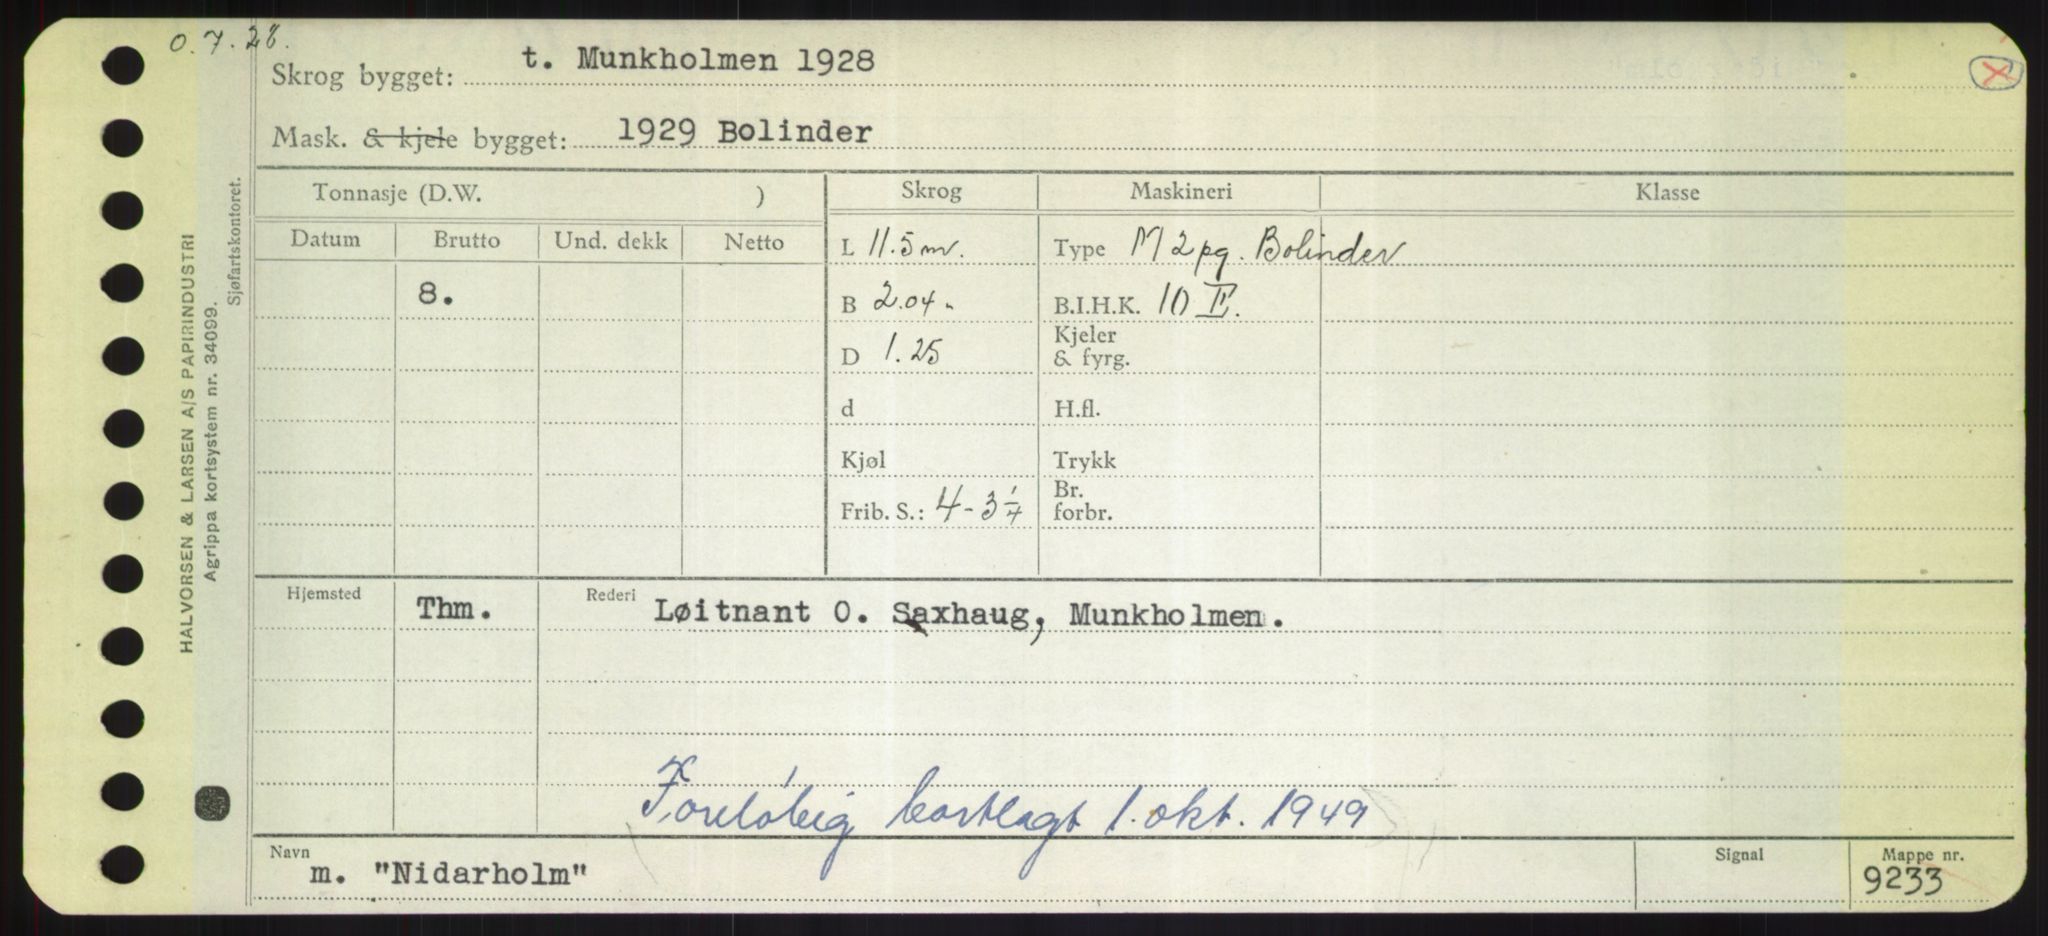 O. 7. 28.
Skrog bygget: t. Munkholmen 1928
Mask. & kjele bygget: 1929 Bolinder
Tonnasje (D.W. )
Skrog
Maskineri
Klasse
Datum
Brutto
Und. dekk
Netto
L 11.5 m.
Type M 2 pg. Bolinder
8.
B 2.04 "
B.I.H.K. 10 E.
D 1.25
Kjeler
& fyrg.
d
H.fl.
Kjøl
Trykk
Frib. S.: 4-3 1/4
Br.
forbr.
Hjemsted Thm.
Rederi Løitnant O. Saxhaug, Munkholmen.
Foreløbig bortlagt 1. okt. 1949
Navn
m. "Nidarholm"
Signal
Mappe nr.
9233
HALVORSEN & LARSEN A/S PAPIRINDUSTRI
Agrippa kortsystem nr. 34099.
Sjøfartskontoret.